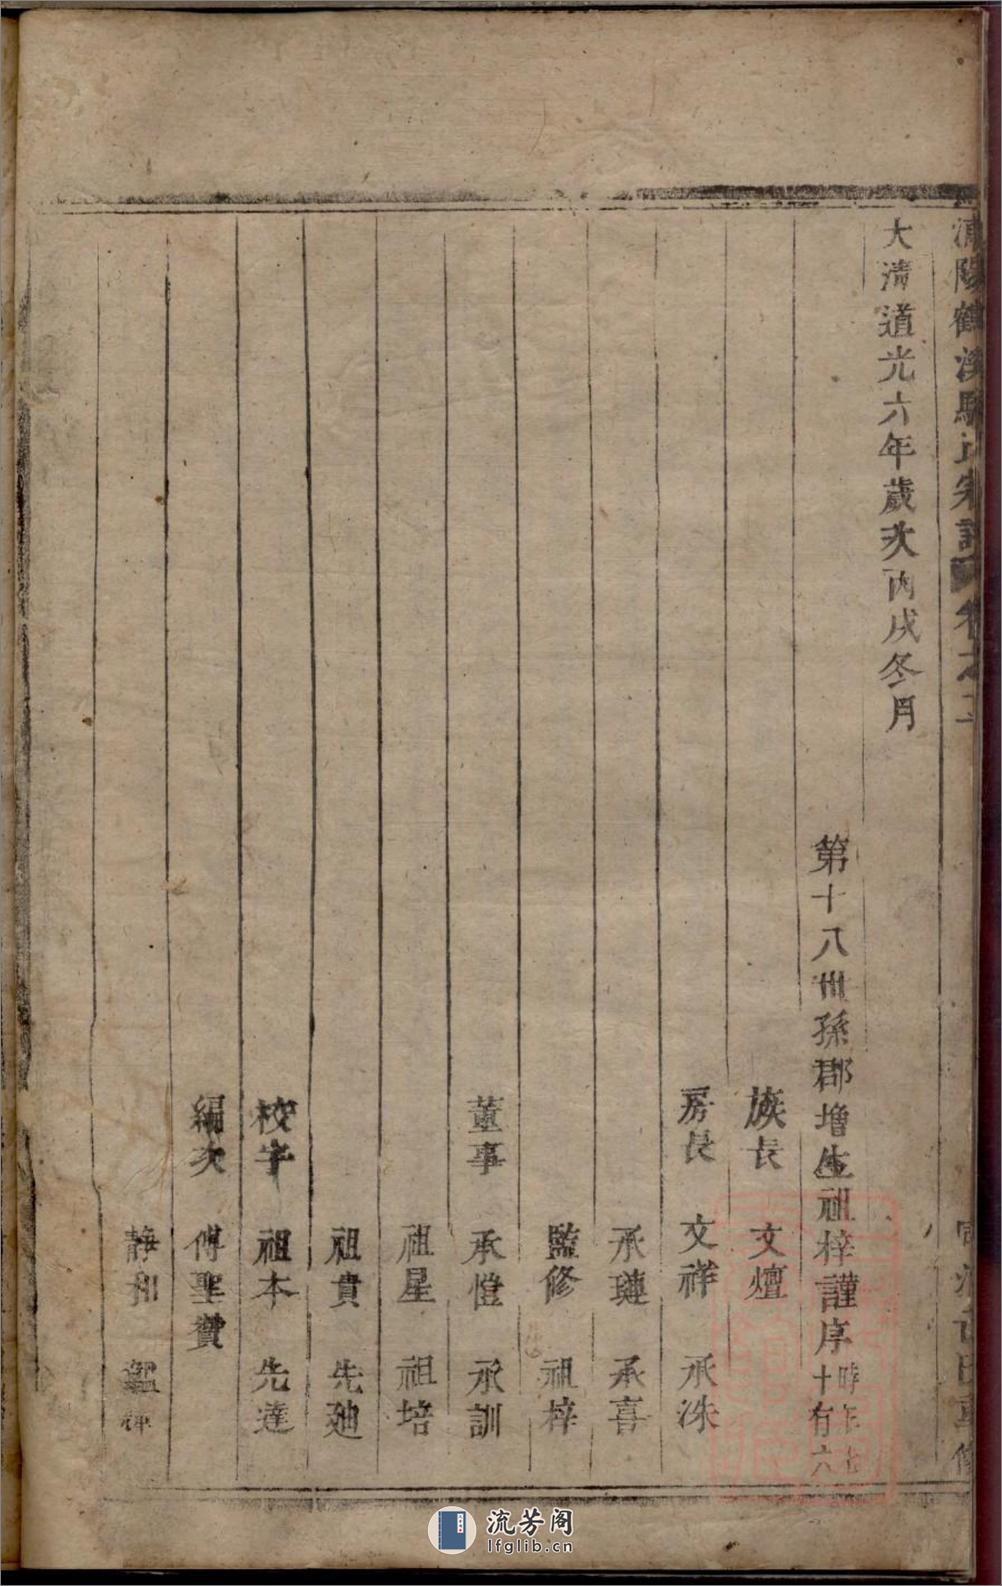 浦陽鶴溪駱氏宗譜 卷之二
大清道光六年歲次丙戌冬月
第十八世孫郡增生祖梓謹序時年七十有六
族長 文壇
房長 文祥 承洙
承璉 承喜
監修 祖梓
董事 承愷 承訓
祖星 祖培
祖貴 先廸
校字 祖本 先達
編次 傅聖賛
靜和
流芳阁
lfglib.cn